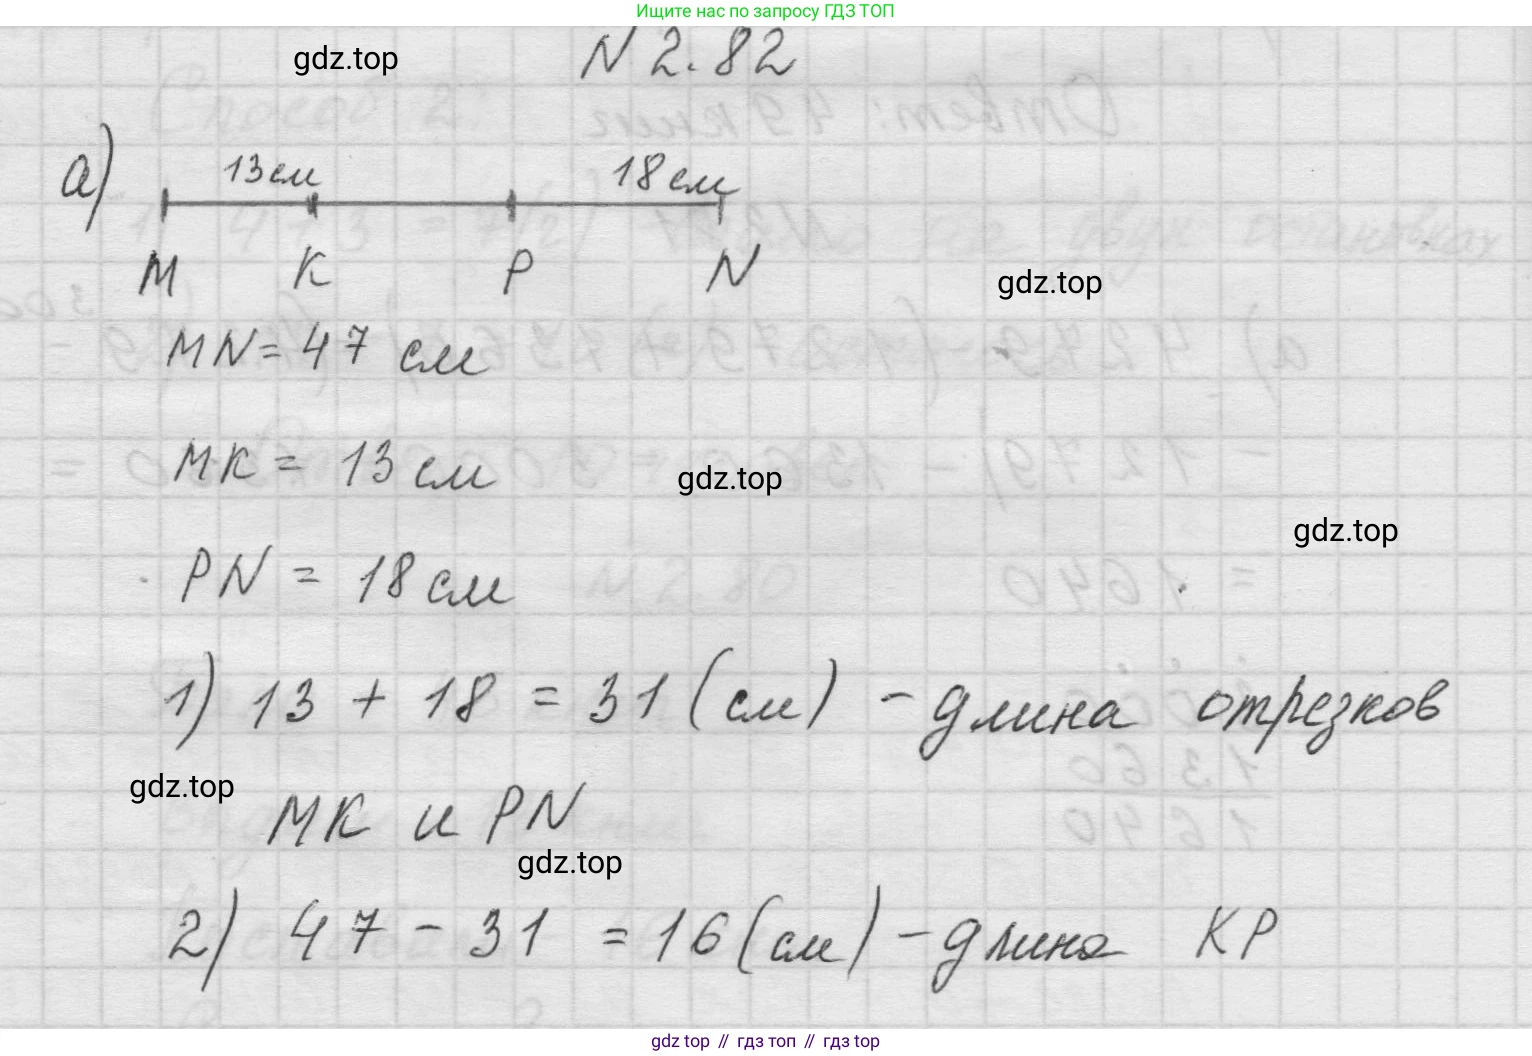 Ищите нас по запросу ГДЗ ТОП
N 2.82
gdz.top
а) 13см 18см
M K P N
gdz.top
MN = 47 см
MK = 13 см
gdz.top
gdz.top
PN = 18 см
1) 13 + 18 = 31 (см) - длина отрезков
gdz.top
MK и PN
gdz.top
2) 47 - 31 = 16 (см) - длина KP
gdz.top // гдз топ // гдз.top